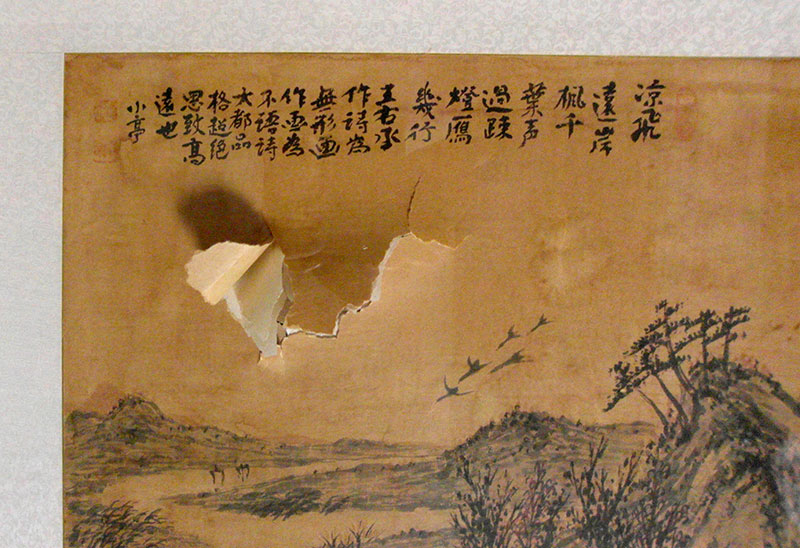 凉飛
遠岸
楓千
葉声
過疎
燈鴈
幾行
王右丞
作詩為
無形画
作画為
不語詩
大都品
格超絶
思致高
遠也
小亭